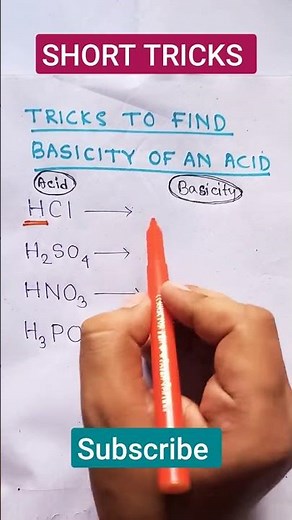 SHORT TRICKS
TRICKS TO FIND
BASICITY OF AN ACID
Acid Basicity
HCl →
H₂SO₄ →
HNO₃ →
H₃PO
Subscribe